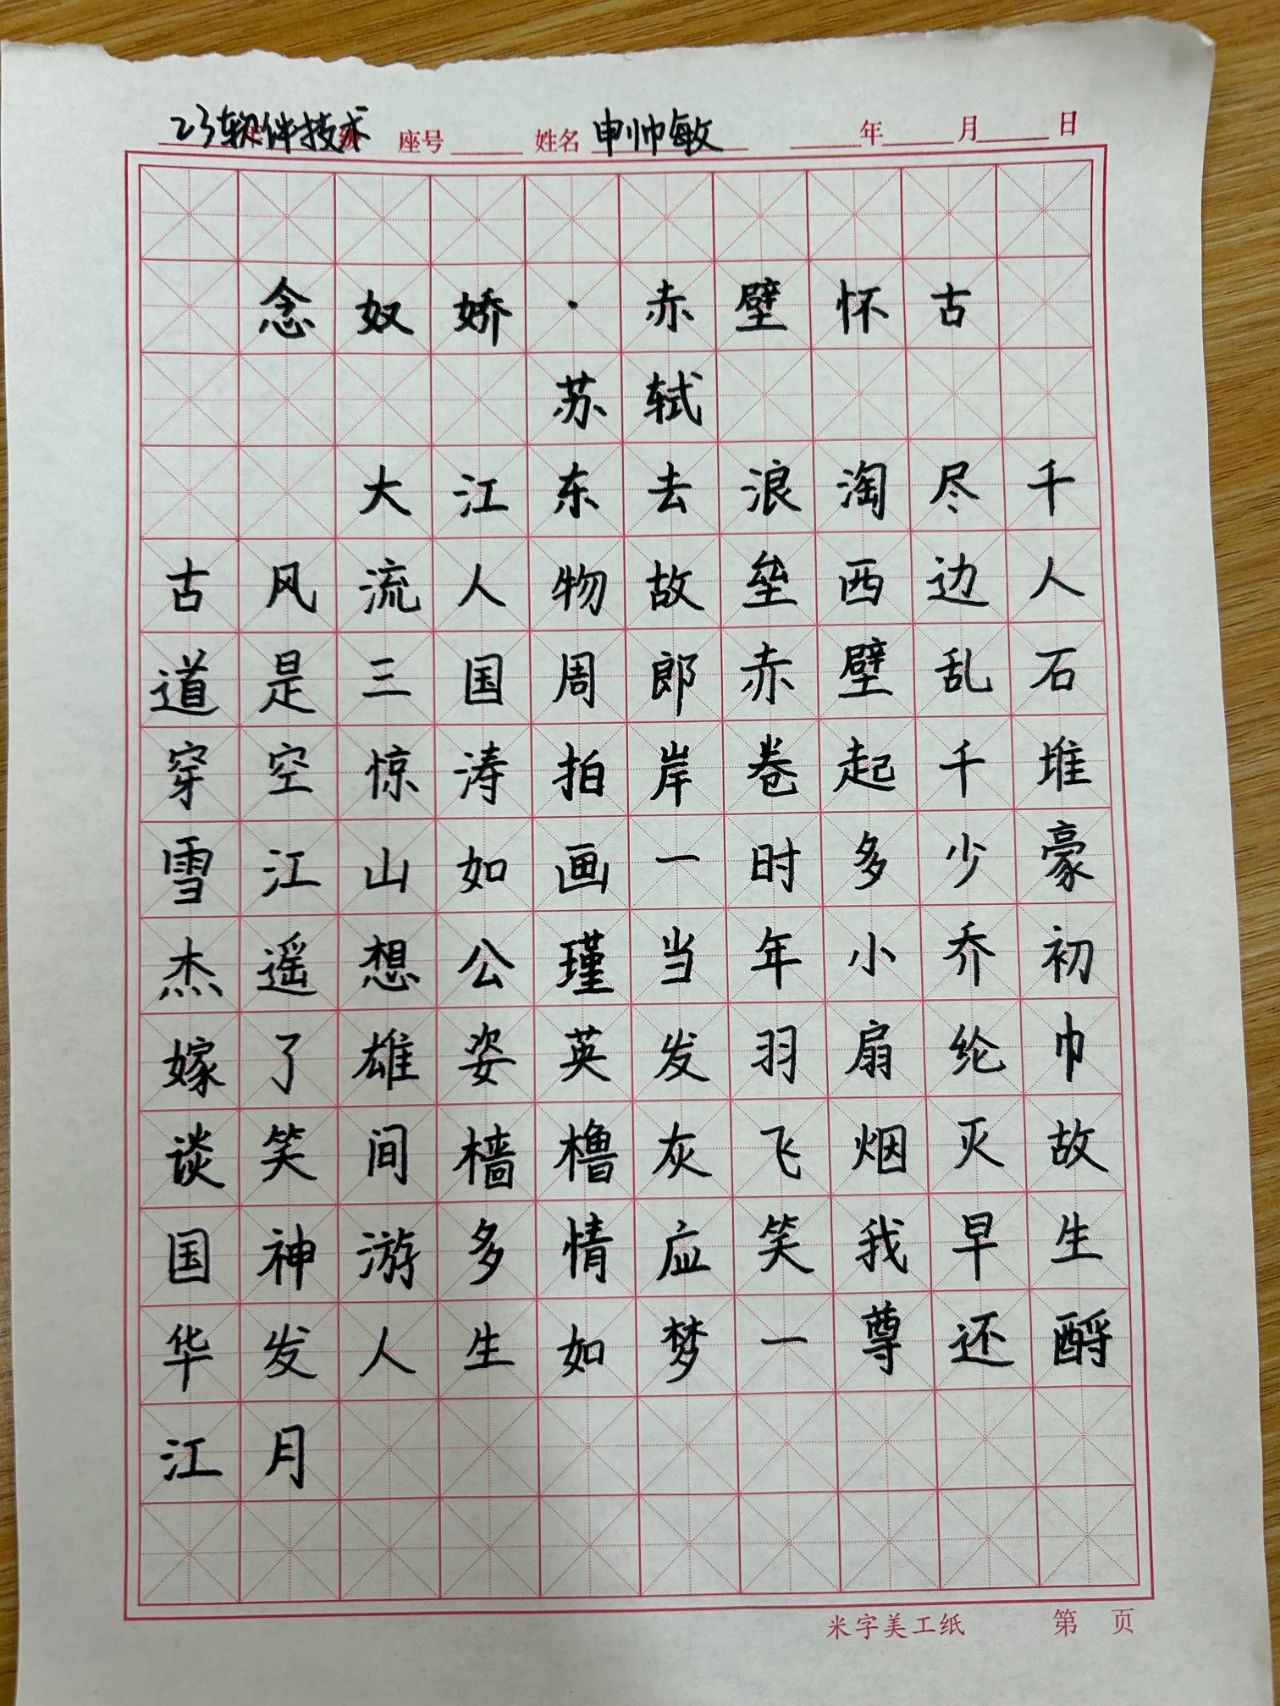 23软件技术 座号 姓名 申帅敏 年 月 日
念奴娇·赤壁怀古
苏轼
大江东去浪淘尽千
古风流人物故垒西边人
道是三国周郎赤壁乱石
穿空惊涛拍岸卷起千堆
雪江山如画一时多少豪
杰遥想公瑾当年小乔初
嫁了雄姿英发羽扇纶巾
谈笑间樯橹灰飞烟灭故
国神游多情应笑我早生
华发人生如梦一尊还酹
江月
米字美工纸 第 页